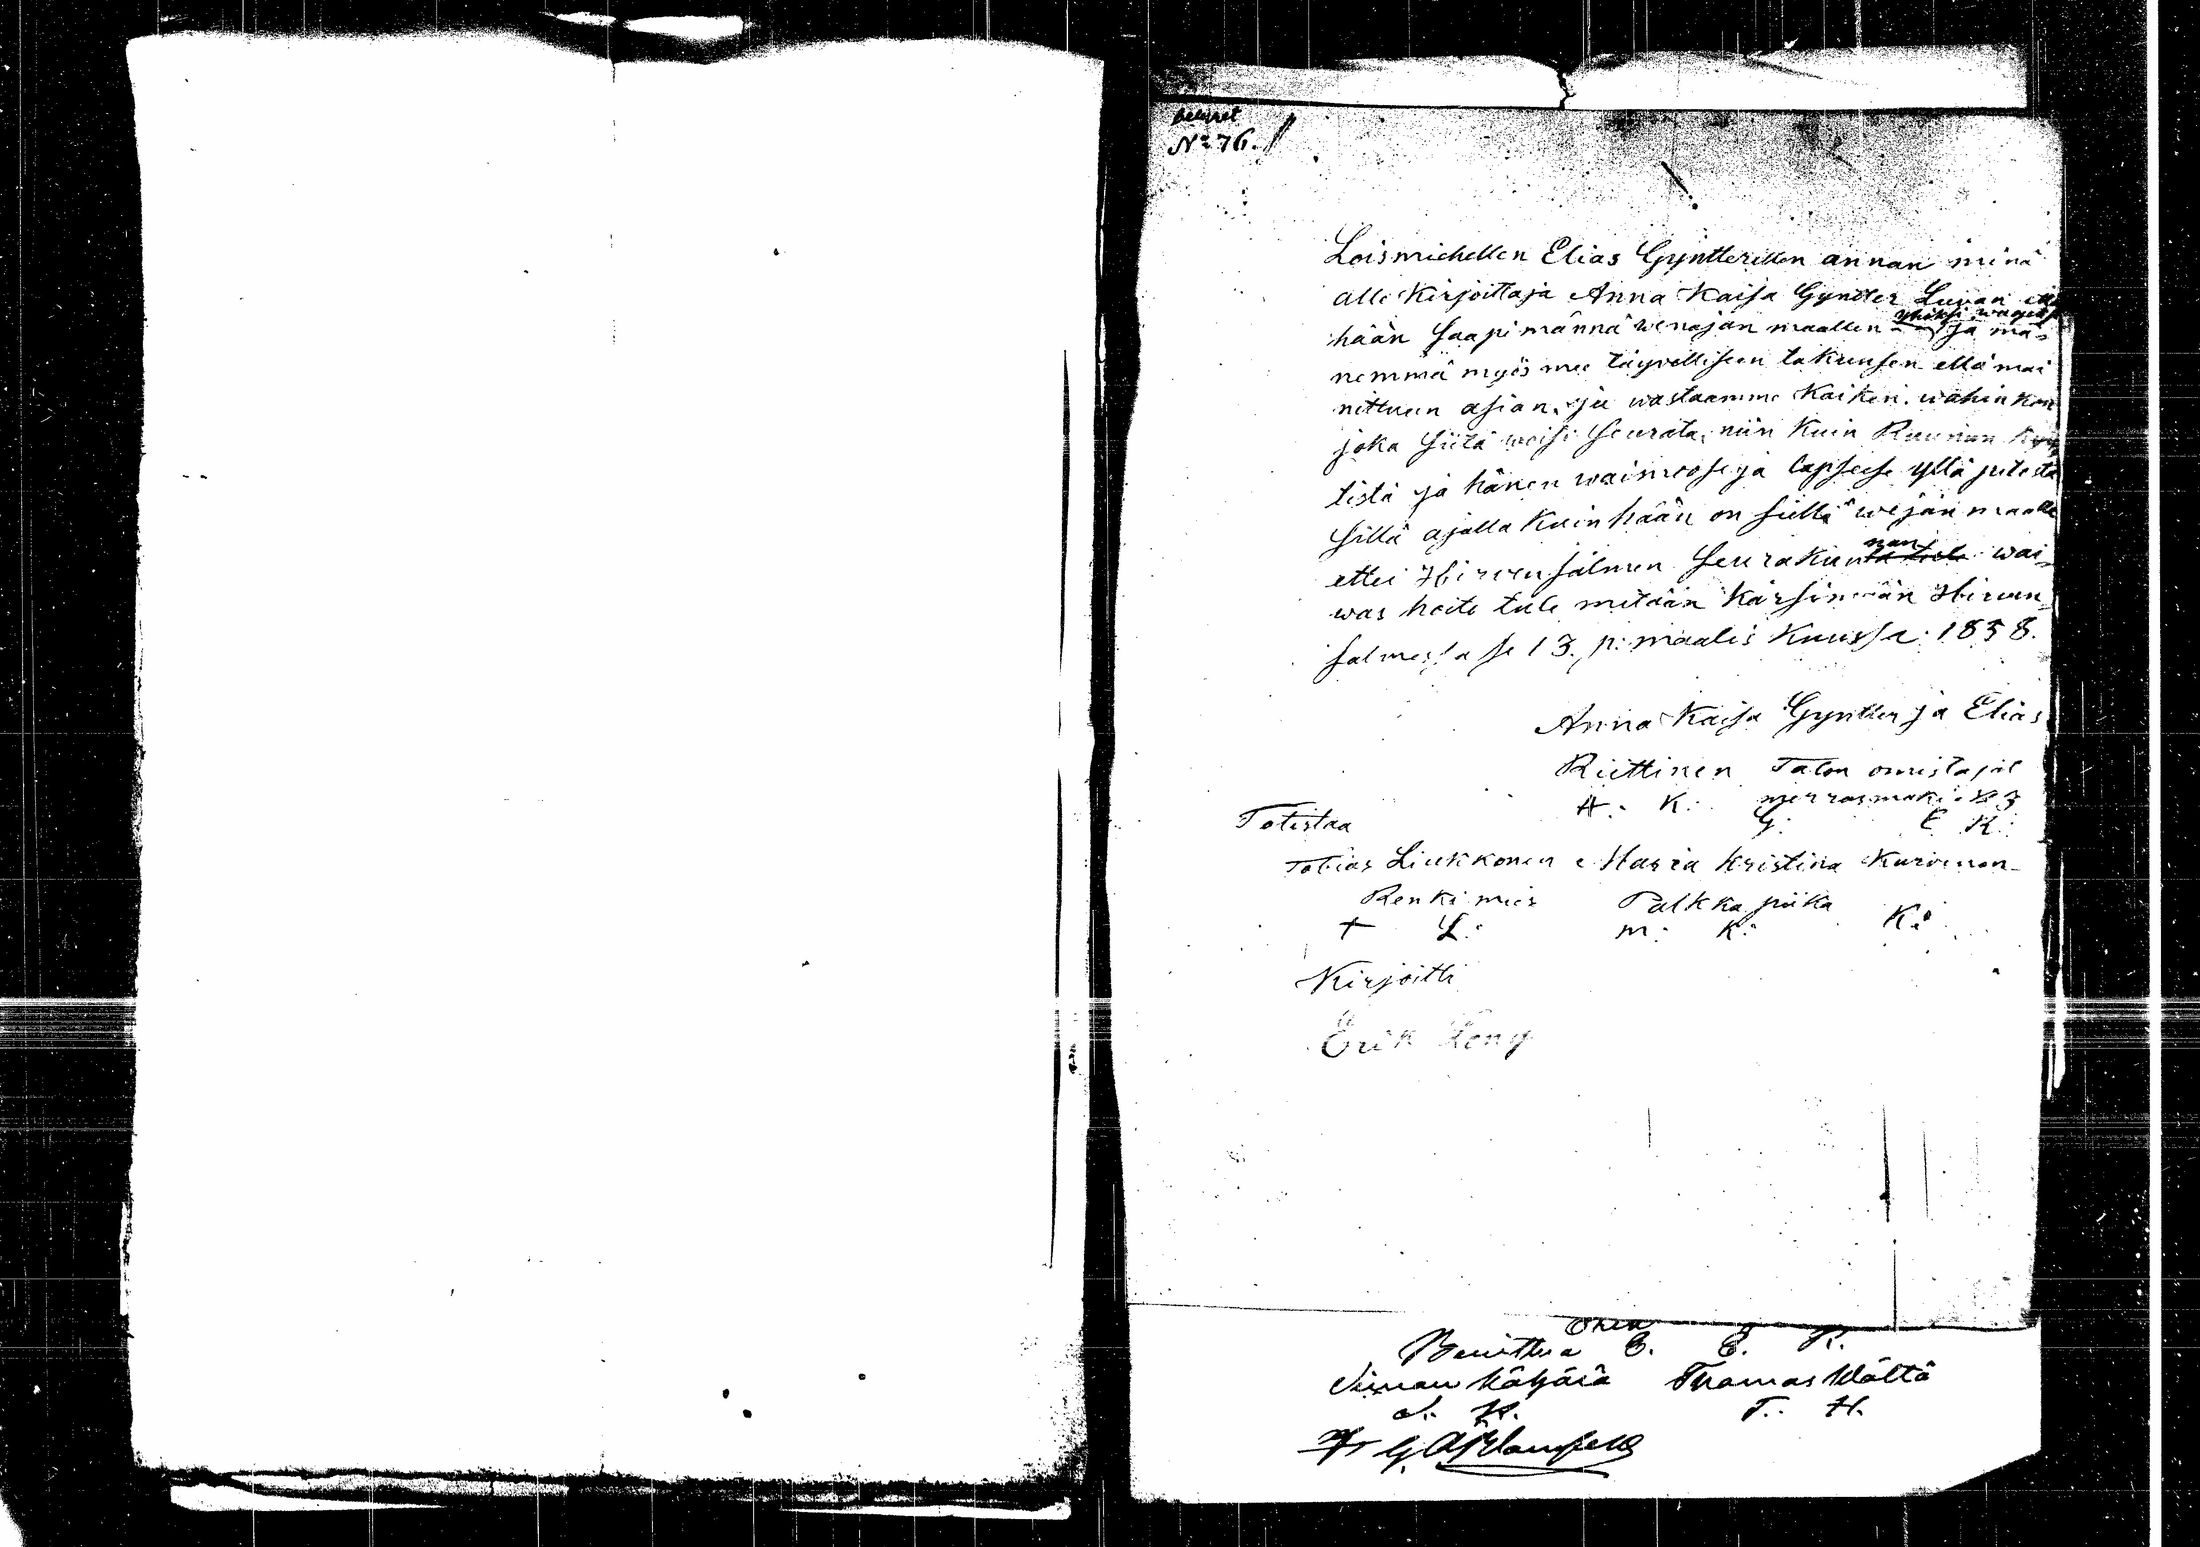 No 76.
Loismiehellen Elias Gyntterillen annan minä
alle Kirjoittaja Anna Kaisa Gynter Luvan että
yhiksi
hään saapi männä wenäjän maallen ja mä-
nemmä myös mee täyvelliseen takuusen että mai
nittuun asian, ja wastaamme Kaiken wahinkon
joka siitä woisi seurata, niin Kuin Ruunun
tistä ja hänen waimoose ja lapseese yllä
sillä ajalla Kuin hään on siellä wejän maalla
nan
ettei Hirvensalmen seurakun wai-
was hoito tule mitään Kärsimään Hirven-
salmesta se 13. p: maalis Kuussa 1858.
Anna Kaisa Gyntter ja Elias
Riettinen Talon omistajat
A: K: G: E K:
Totistaa
Tobias Liukkonen Maria Kristina Kurvinen
Renki mies Palkka piika
T L: M: K: K:
Kirjoitti
Erik
E. E. R.
Simon Käyhäiä Thomas Hölttä
S. K. T. H.